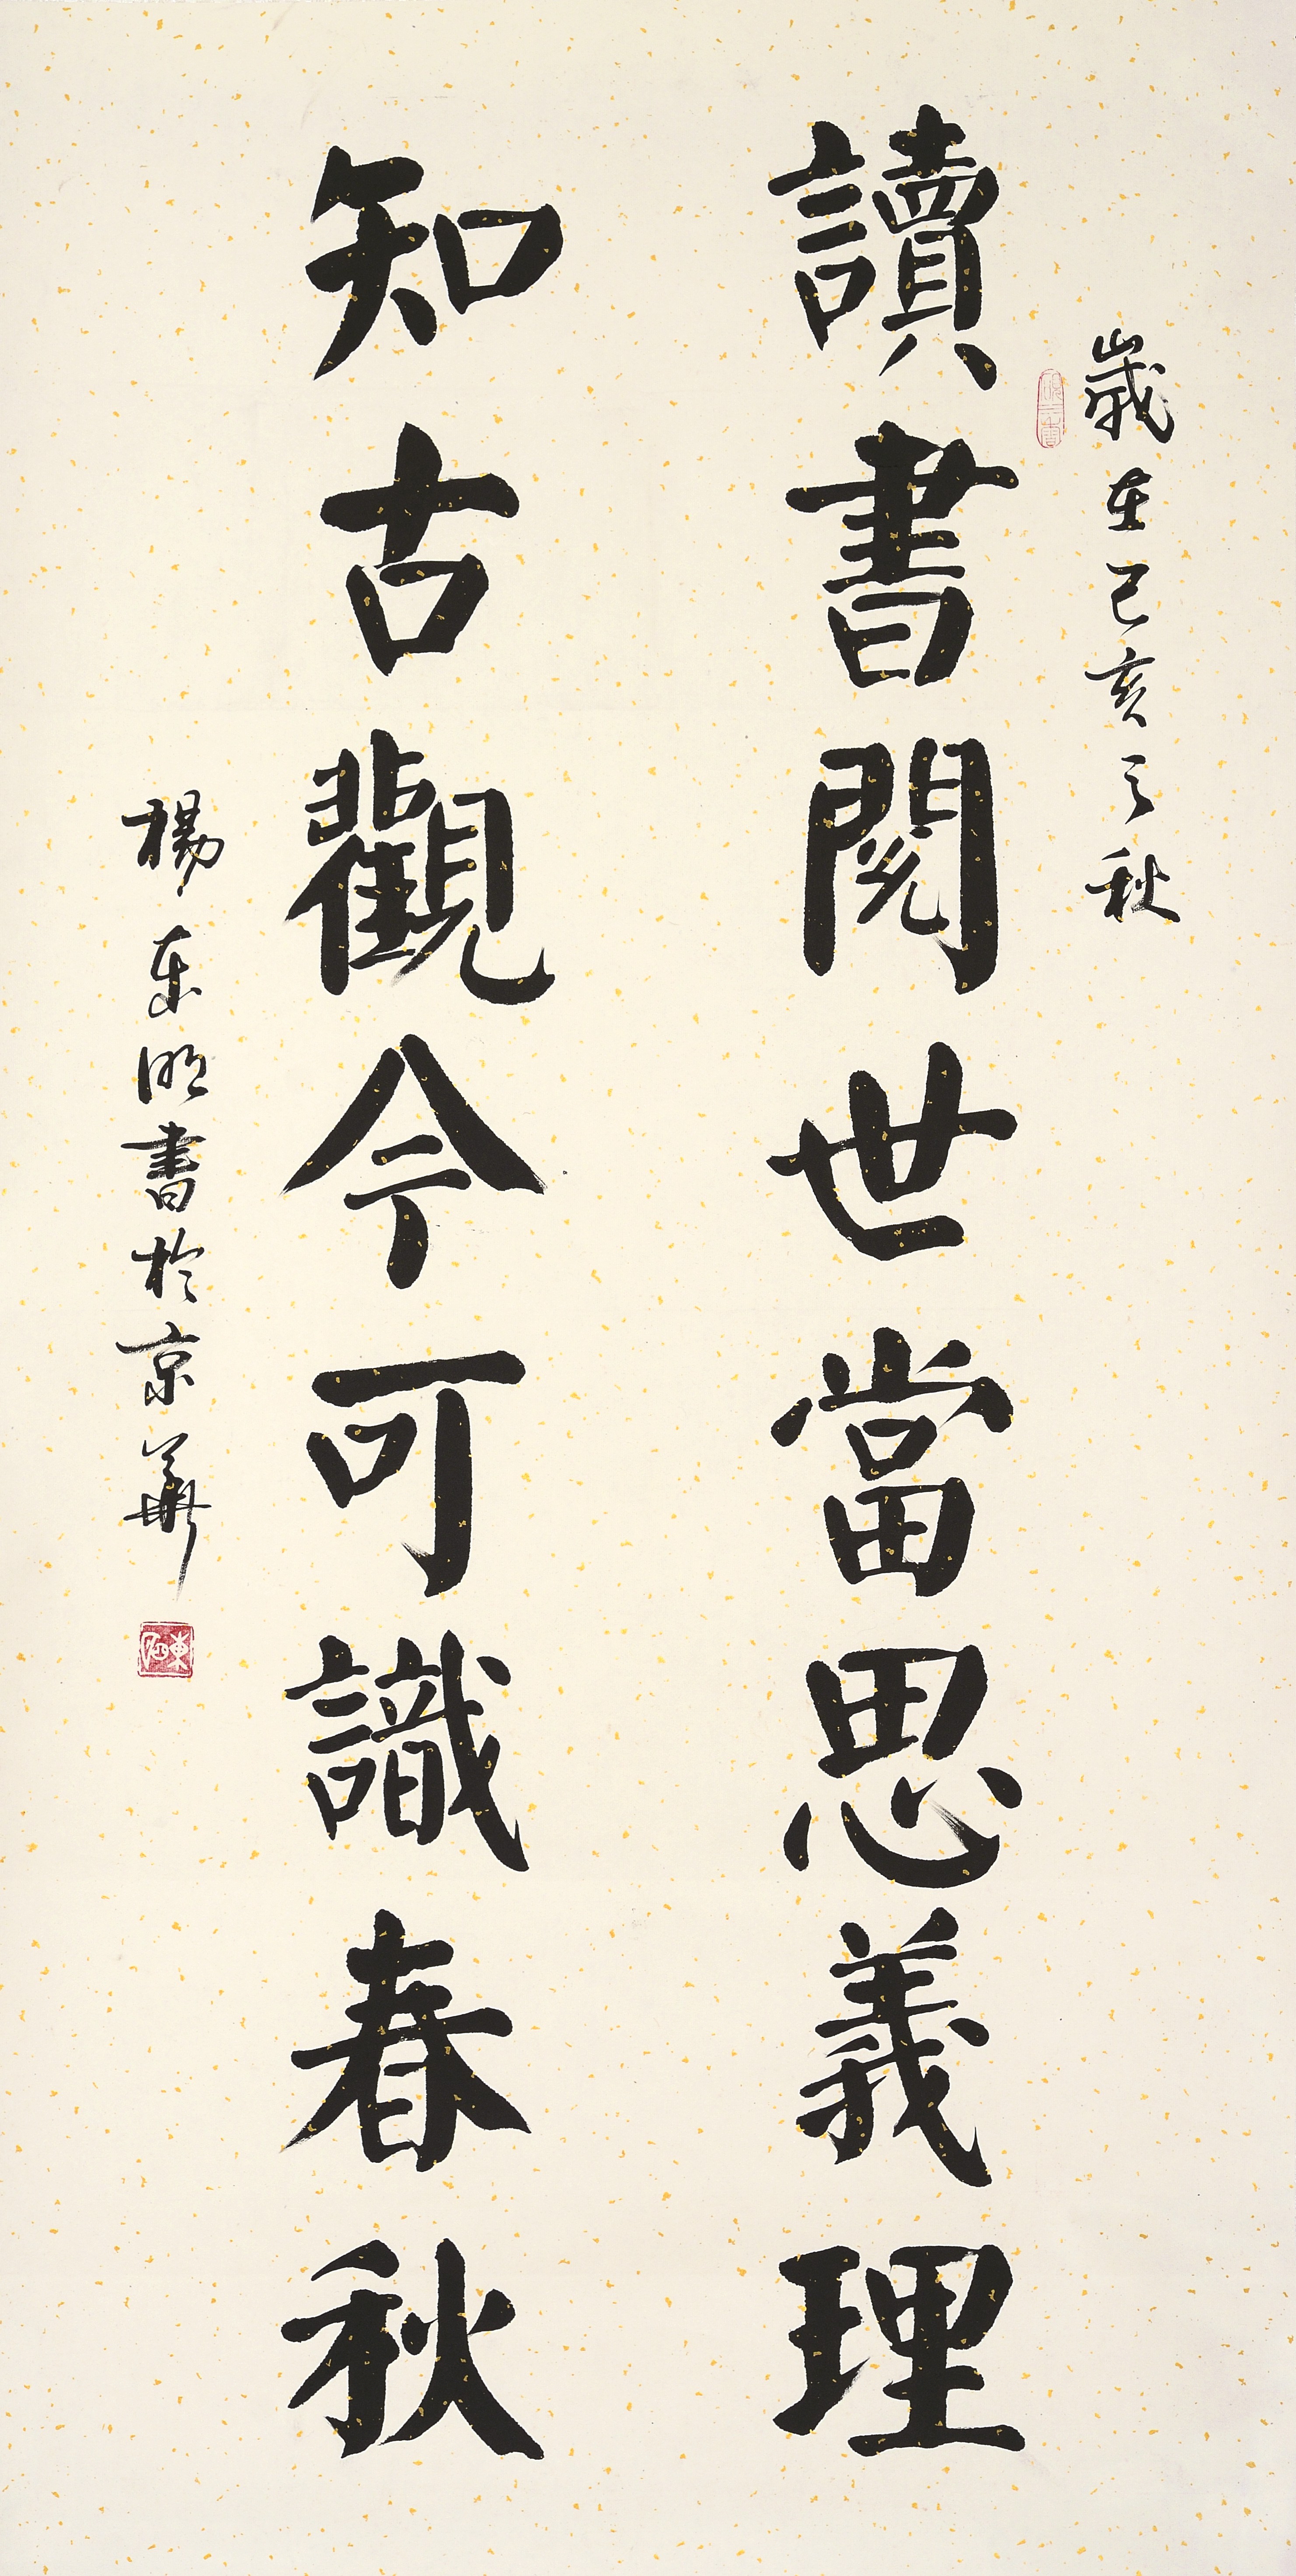 歲在己亥之秋
讀書閱世當思義理
知古觀今可識春秋
楊東明書於京華